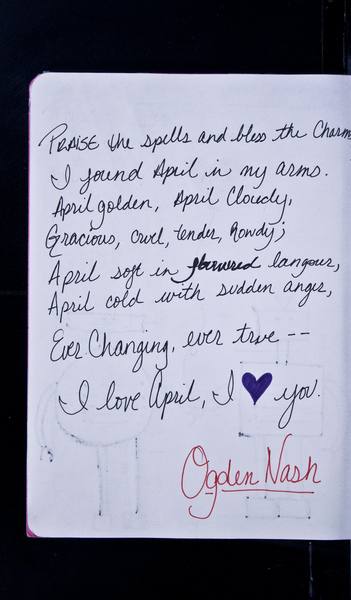 PRAISE the spells and bless the Charm
I found April in my arms.
April golden, April Cloudy,
Gracious, cruel, tender, Rowdy;
April soft in flowered langour,
April cold with sudden anger,
Ever Changing, ever true --
I love April, I ♥ you.
Ogden Nash